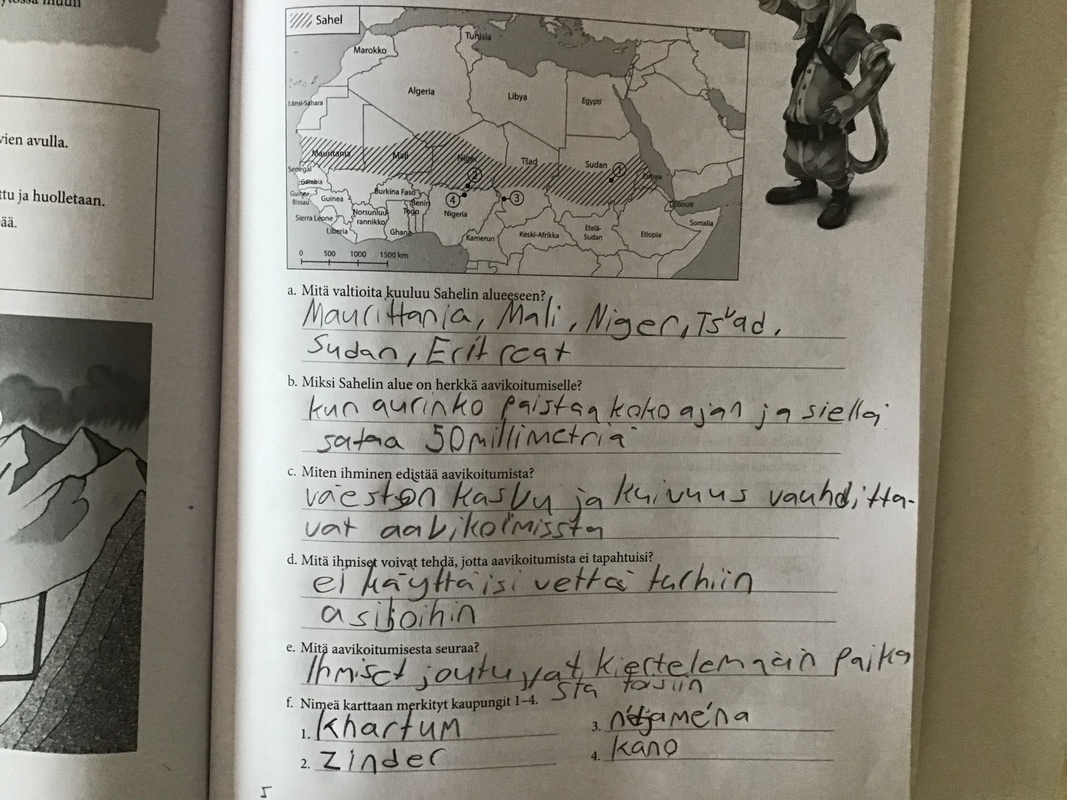 ytössä muun
vien avulla.
ttu ja huolletaan.
ää.
Sahel
Tunisia
Marokko
Algeria
Libya
Egypti
Länsi-Sahara
Mauritania
Mali
Niger
Tšad
Sudan
1
Eritrea
2
Senegal
Gambia
Guinea-
Bissau
Guinea
Burkina Faso
Benin
4
3
Djibouti
Sierra Leone
Norsunluu-
rannikko
Togo
Nigeria
Somalia
Liberia
Ghana
Kamerun
Keski-Afrikka
Etelä-
Sudan
Etiopia
0 500 1000 1500 km
a. Mitä valtioita kuuluu Sahelin alueeseen?
Maurittania, Mali, Niger, Tsˇad,
Sudan, Erit reat
b. Miksi Sahelin alue on herkkä aavikoitumiselle?
kun aurinko paistaa koko ajan ja siellä
sataa 50 millimetriä
c. Miten ihminen edistää aavikoitumista?
väestön kasvu ja kuivuus vauhditta-
vat aavikoimissta
d. Mitä ihmiset voivat tehdä, jotta aavikoitumista ei tapahtuisi?
ei käyttäisi vettä turhiin
asijoihin
e. Mitä aavikoitumisesta seuraa?
Ihmiset joutuvat kiertelemään paika
sta toisiin
f. Nimeä karttaan merkityt kaupungit 1–4.
1. Khartum
3. n'djaména
2. Zinder
4. kano
5